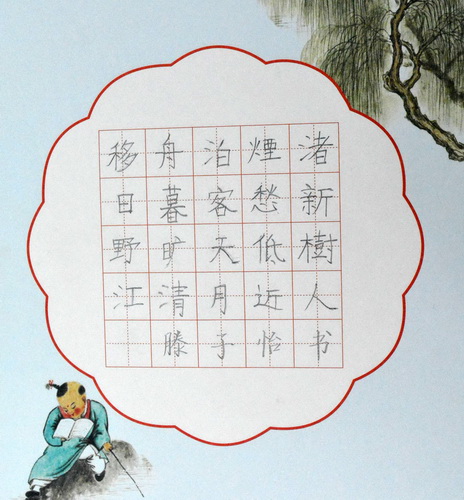 移舟泊煙渚
日暮客愁新
野旷天低樹
江清月近人
滕子怡书